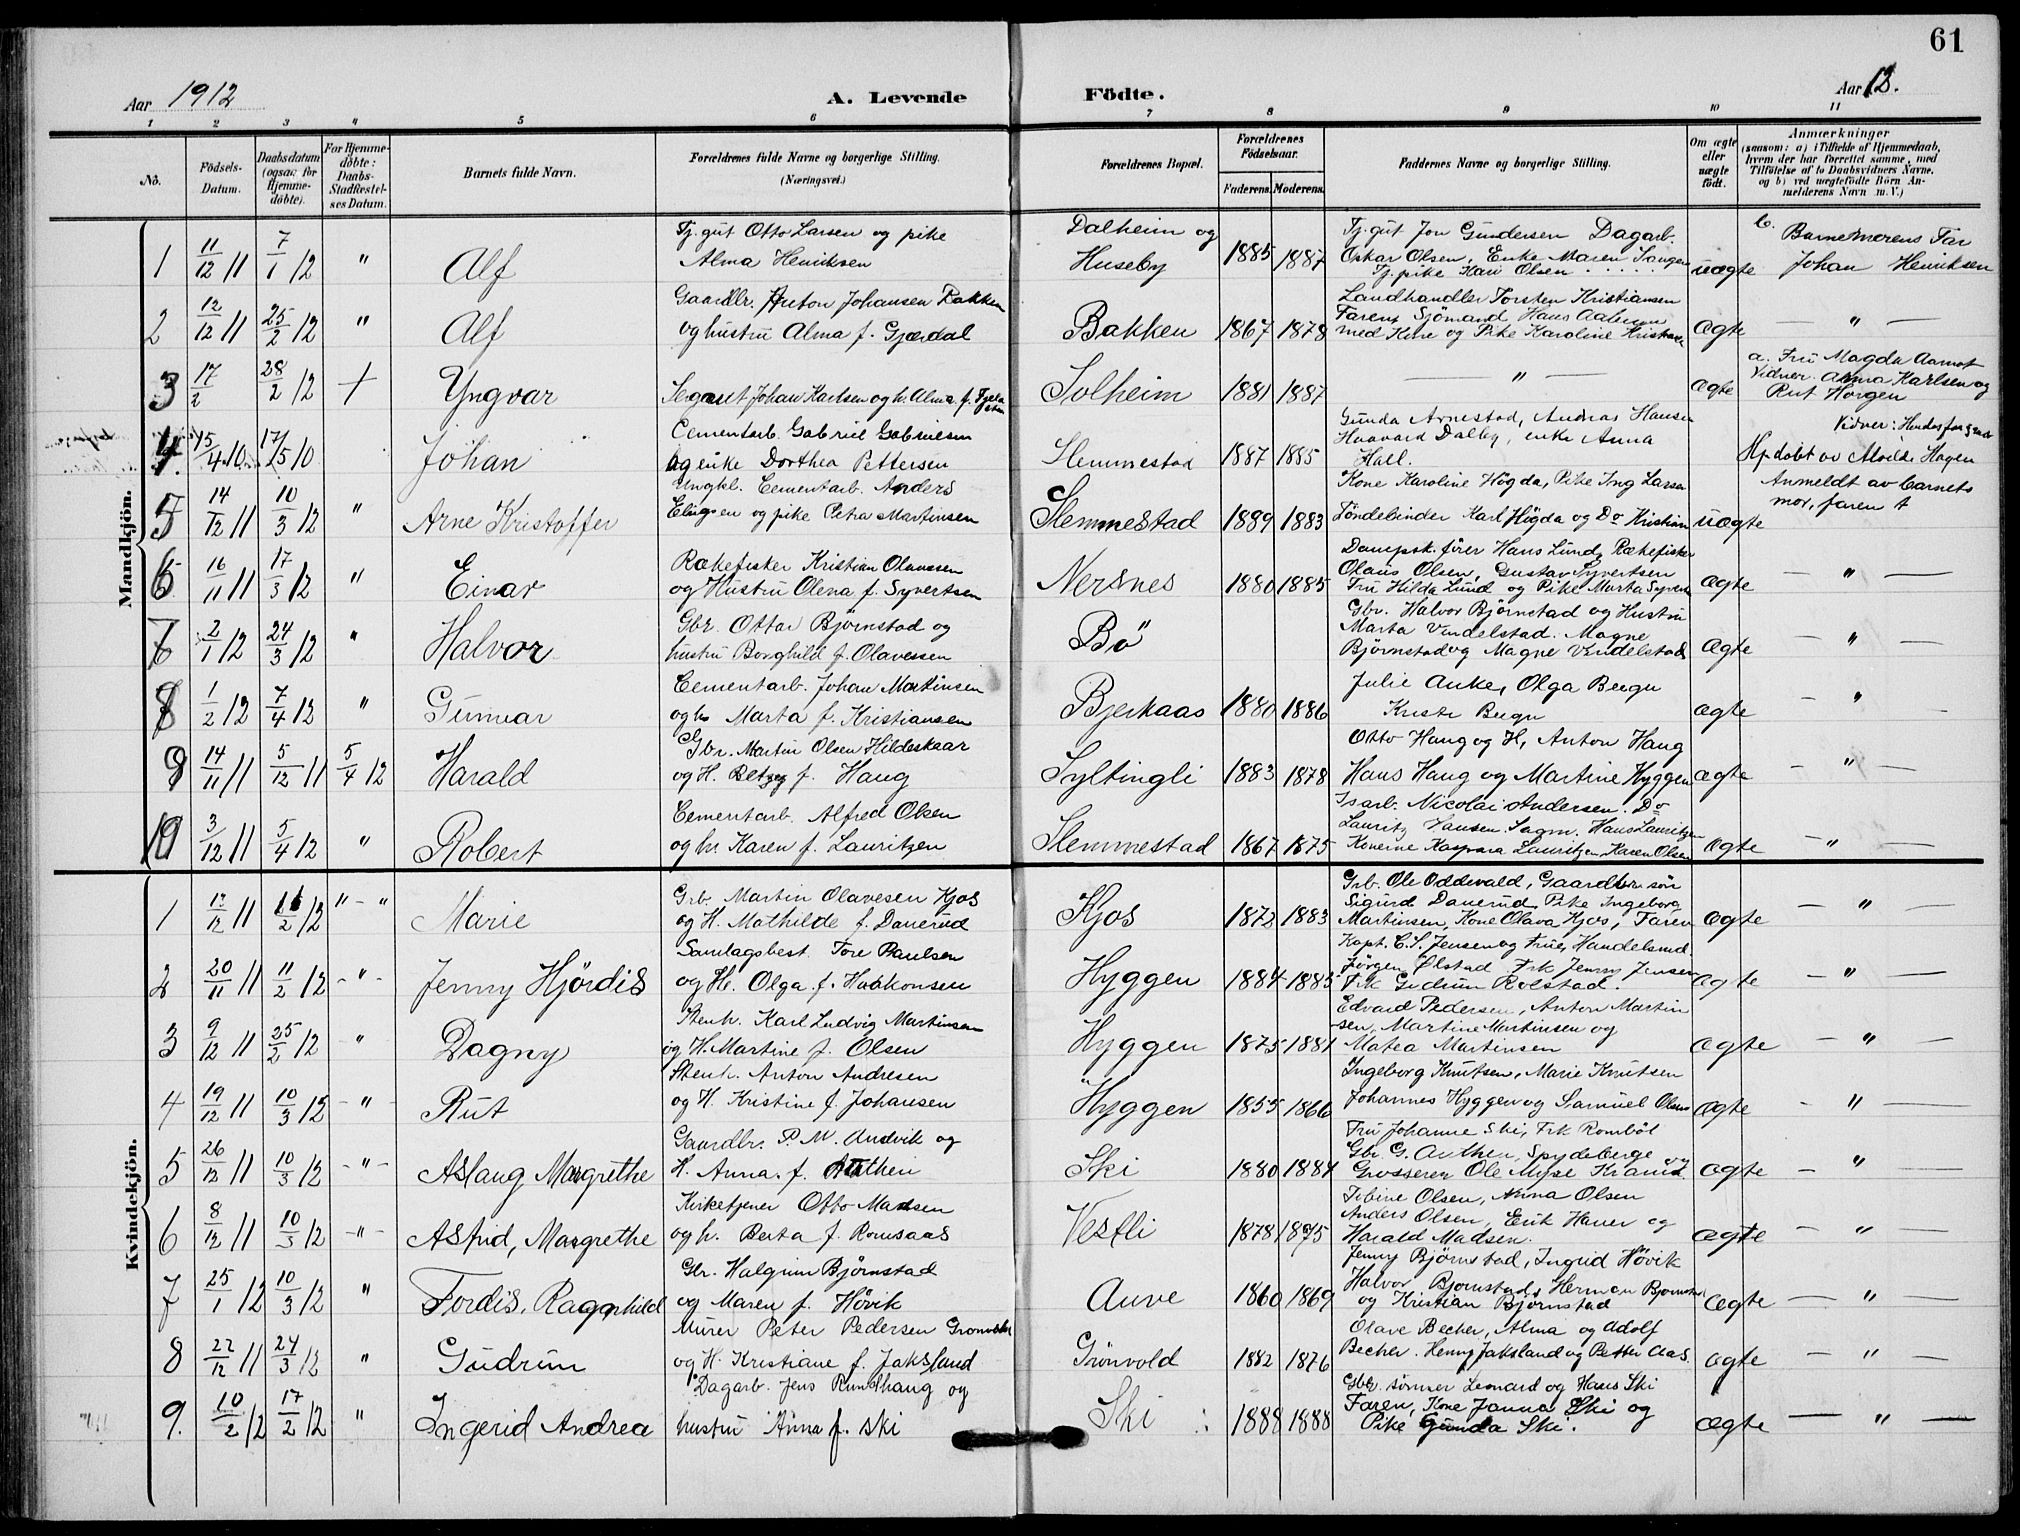 61
Aar 1912
A. Levende
Födte.
Aar 12.
1 2 3 4 5 6 7 8 9 10 11
No.
Födsels-Datum.
Daabsdatum (ogsaa for Hjemme-döbte).
For Hjemme-döbte: Daabs-Stadfæstel-ses Datum.
Barnets fulde Navn.
Forældrenes fulde Navne og borgerlige Stilling. (Næringsvei.)
Forældrenes Bopæl.
Forældrenes Födselsaar.
Faderens. Moderens.
Faddernes Navne og borgerlige Stilling.
Om ægte eller uægte födt.
Anmærkninger (saasom: a) i Tilfælde af Hjemmedaab, hvem der har forrettet samme, med Tilföielse af to Daabsvidners Navne, og b) ved uægtefödte Börn An-melderens Navn m. V.)
Mandkjön.
Tj. gut Otto Larsen og pike
Dalheim og
Tj. gut Jon Gundersen Dagarb.
b. Barnemorens Far
1 11/12 11 7/1 12 " Alf
Alma Henriksen
Huseby 1885 1887
Oskar Olsen, Enke Maren
Tj. pike Kari Olsen
uægte
Johan Henriksen
Gaardbr. Anton Johansen Bakken
Landhandler Torsten Kristiansen
2 12/12 11 25/2 12 " Alf
og hustru Alma f. Gjærdal
Bakken 1867 1878
Faren, Sjömand Hans
med Kone og Pike Karoline
ægte
— " —
a. Fru Magda Aamot
3 17/2 28/2 12 + Yngvar
Johan Karlsen og h. Alma f.
Solheim 1881 1887
— " —
ægte
Vidner. Alma Karlsen og
Rut Horgen
Cementarb. Gabriel Gabrielsen
Gunda Arnestad, Andras Hansen
Vidner:
4. 15/4 10 17/5 10 Johan
og enke Dorthea Pettersen
Slemmestad 1887 1885
Haavard Dalby, enke Anna
Hall.
Hj. döbt av Alvilde Hagen
Ungkl. Cementarb. Anders
Kone Karoline Högda, Pike Ing Larsen
Anmeldt av barnets
5 14/12 11 10/3 12 " Arne Kristoffer
Elingsen og pike Petra Martinsen
Slemmestad 1889 1883
Töndebinder Karl Högda og Do Kristian
uægte
mor, faren †
Rækefisker Kristian Olavesen
Dampsk. förer Hans Lund, Rækefisker
6 16/11 11 17/3 12 " Einar
og Hustru Olena f. Syvertsen
Nersnes 1880 1885
Olaus Olsen, Gustav Syvertsen
Fru Hilda Lund og Pike Marta
ægte
— " —
Gbr. Ottar Björnstad og
Gbr. Halvor Björnstad og Hustru
7 2/1 12 24/3 12 " Halvor
hustru Borghild f. Olavessen
Bö
Marta Vendelstad. Magne
Björnstad og Magne Vendelstad
ægte
— " —
Cementarb. Johan Martinsen
Julie Auke, Olga
8 1/2 12 7/4 12 " Gunnar
og h. Marta f. Kristiansen
Bjerkaas 1880 1886
ægte
— "
Gbr. Martin Olsen Hildeskaar
Otto Haug og H, Anton Haug
9 14/11 11 5/12 11 5/4 12 Harald
og H. Betzy f. Haug
Syltingli 1883 1878
Hans Haug og Martine Hyggen
ægte
— " —
Cementarb. Alfred Olsen
Isarb. Nicolai Andersen. Do
10 3/12 11 5/4 12 " Robert
og h. Karen f. Lauritzen
Slemmestad 1867 1875
Lauritz Hansen Sagm. Hans Lauritzen
Konerne Kaspara Lauritzen, Karen Olsen
ægte
— " —
Kvindekjön.
Grb. Martin Olavesen Kjos
Grb. Ole Oddevald, Gaardbr. sön
1 12/12 11 11/2 12 " - " Marie
og H. Mathilde f. Danerud
Kjos 1872 1883
Sigurd Danerud, Pike Ingeborg
Martinsen, Kone Olava Kjos, Faren
ægte
— " —
Samlagsbest. Tore Paulsen
Kapt. C. S. Jensen og Frue, Handelsmd.
2 20/11 11 11/2 12 - " - Jenny Hjördis
og H. Olga f. Haakonsen
Hyggen 1884 1885
Jörgen Ølstad Frk Jenny Jensen
Frk Gudrun Rolstad.
ægte
— " —
Stenh. Karl Ludvig Martinsen
Edvard Pedersen, Anton Martin
3 9/12 11 25/2 12 " Dagny
og H. Martine f. Olsen
Hyggen 1875 1881
sen, Martine Martinsen og
Matea Martinsen
ægte
— " —
Stenh. Anton Andresen
Ingeborg Knutsen, Marie Knutsen
4 19/12 11 10/3 12 - " - Rut
og H. Kristine f. Johansen
Hyggen 1855 1866
Johannes Hyggen og Samuel Olsen
ægte
— " —
Gaardbr. P. M. Andvik og
Fru Johanne Ski, Frk Romböl
5 26/12 11 10/3 12 - " - Aslaug Margrethe
H. Anna f. Authen
Ski 1880 1884
Gbr. G. Authen, Spydeberge og
Grosserer Ole Myse Krania.
ægte
— " —
Kirketjener Otto Madsen
Tobine Olsen, Anna Olsen
6 8/12 11 10/3 12 - " - Astrid, Margrethe
og h. Berta f. Romsaas
Vestli 1878 1875
Anders Olsen, Erik Hauer og
Harald Madsen.
ægte
— " —
Gbr. Halgrim Björnstad
Jenny Björnstad, Ingrid Hövik
7 25/1 12 10/3 12 " Tordis, Ragnhild
og Maren f. Hövik
Auve 1860 1869
Halvor Bjørnstad, Herman Bjørnstad
og Kristian Bjørnstad
ægte
— " —
Murer Peter Pedersen Grönvold
Olave Becher, Alma og Adolf
8 22/12 11 24/3 12 " Gudrun
og H. Kristiane f. Jaksland
Grönvold 1882 1876
Becher. Henry Jaksland og Petter Aas.
ægte
— " —
Dagarb. Jens Rundhaug og
Gbr. sönner Leonard og Hans Ski
9. 10/2 12 17/2 12 " Ingerid Andrea
hustru Anna f. Ski
Ski 1888 1888
Faren, Kone Janna Ski og
Pike Gunda Ski.
ægte
— " —